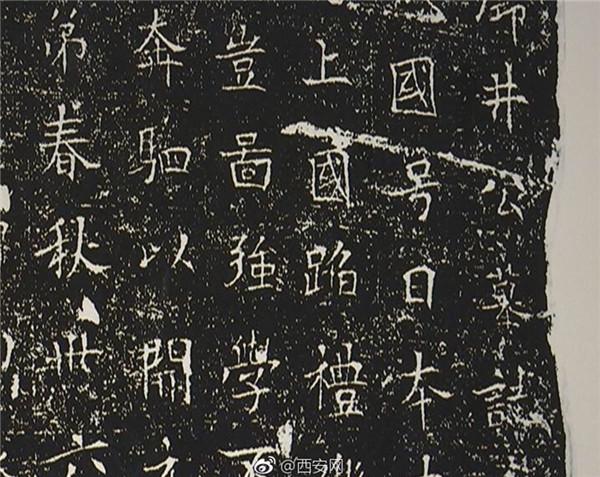 井公墓誌
國号日本
上國蹈禮
豈啚強學
奔駟以開
弟春秋卅六
@西安网